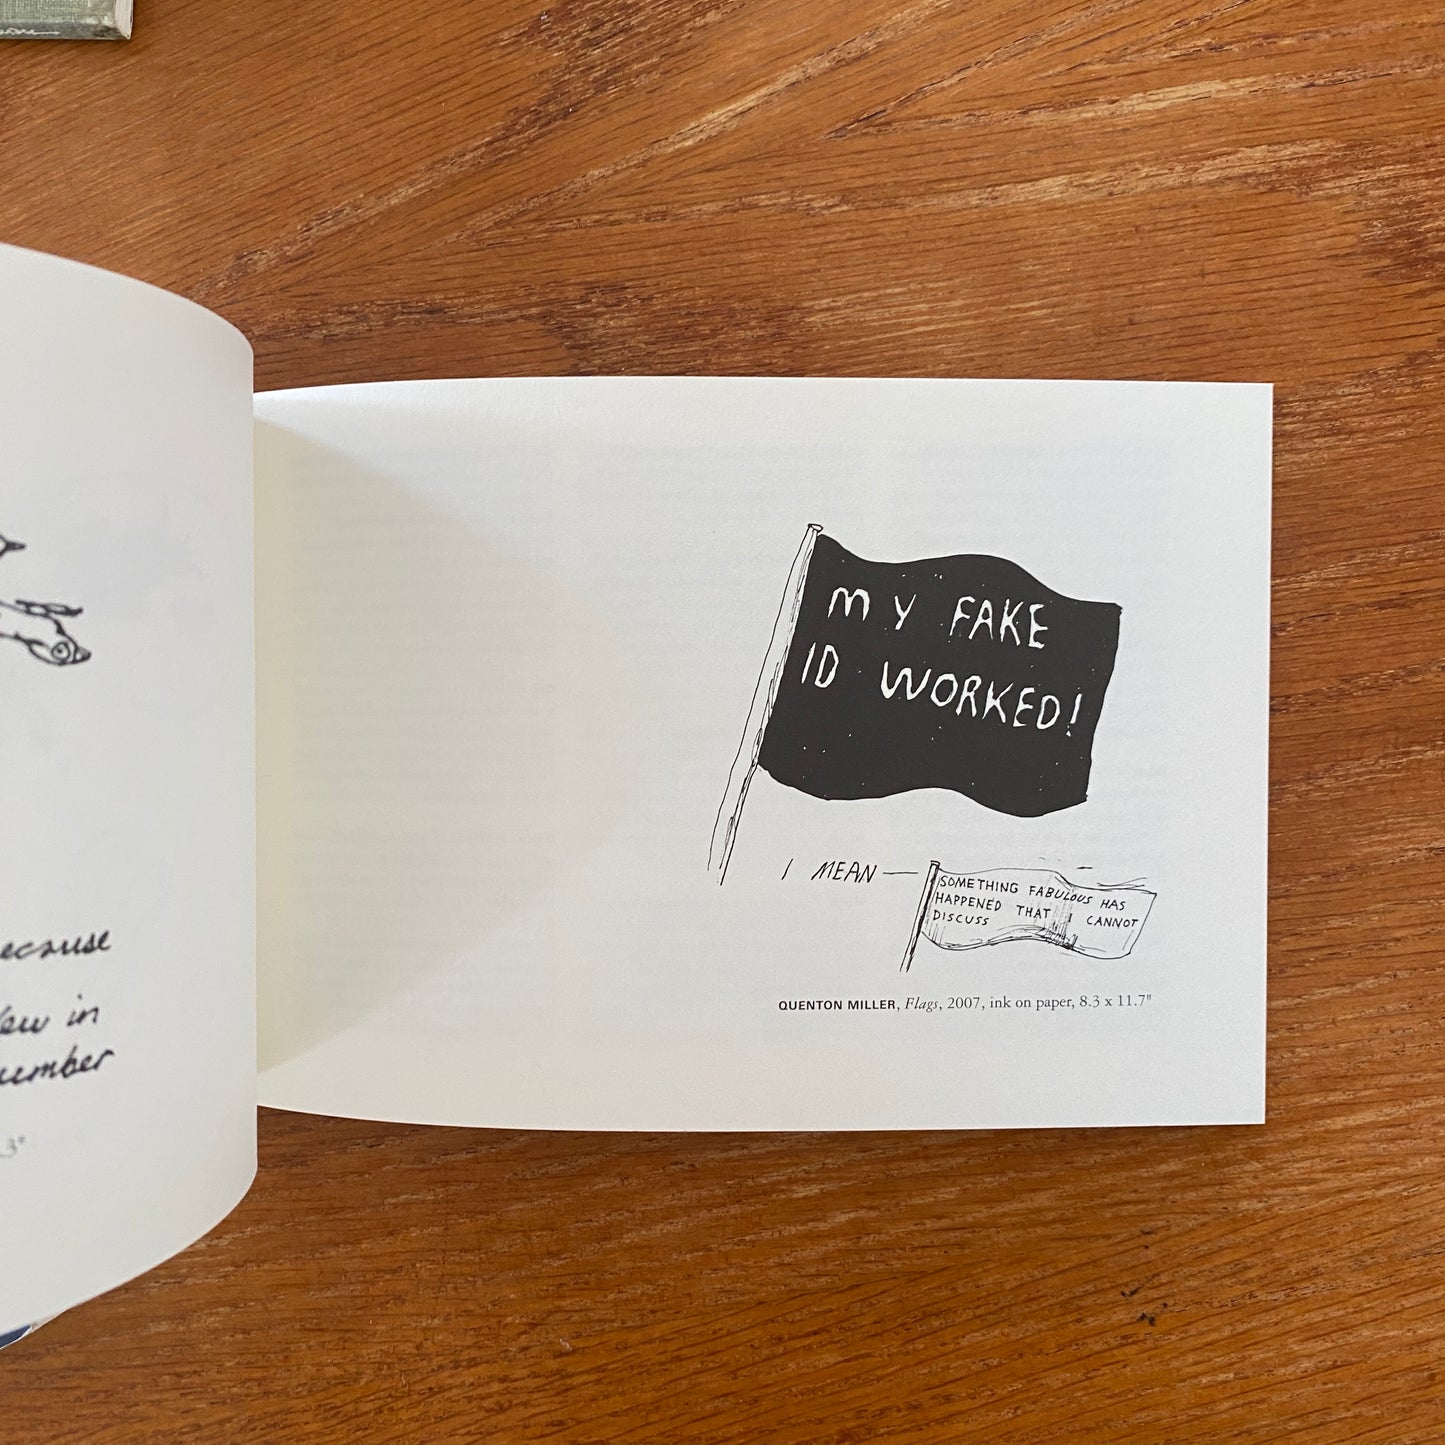 ecause
in
umber
3"
MY FAKE
ID WORKED!
I MEAN —
SOMETHING FABULOUS HAS
HAPPENED THAT I CANNOT
DISCUSS
QUENTON MILLER, Flags, 2007, ink on paper, 8.3 x 11.7"